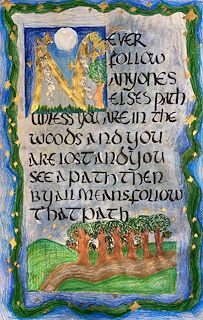 NEVER
FOLLOW
ANYONES
ELSES PATH
UNLESS YOU ARE IN THE
WOODS AND YOU
ARE LOST AND YOU
SEE A PATH THEN
BY ALL MEANS FOLLOW
THAT PATH